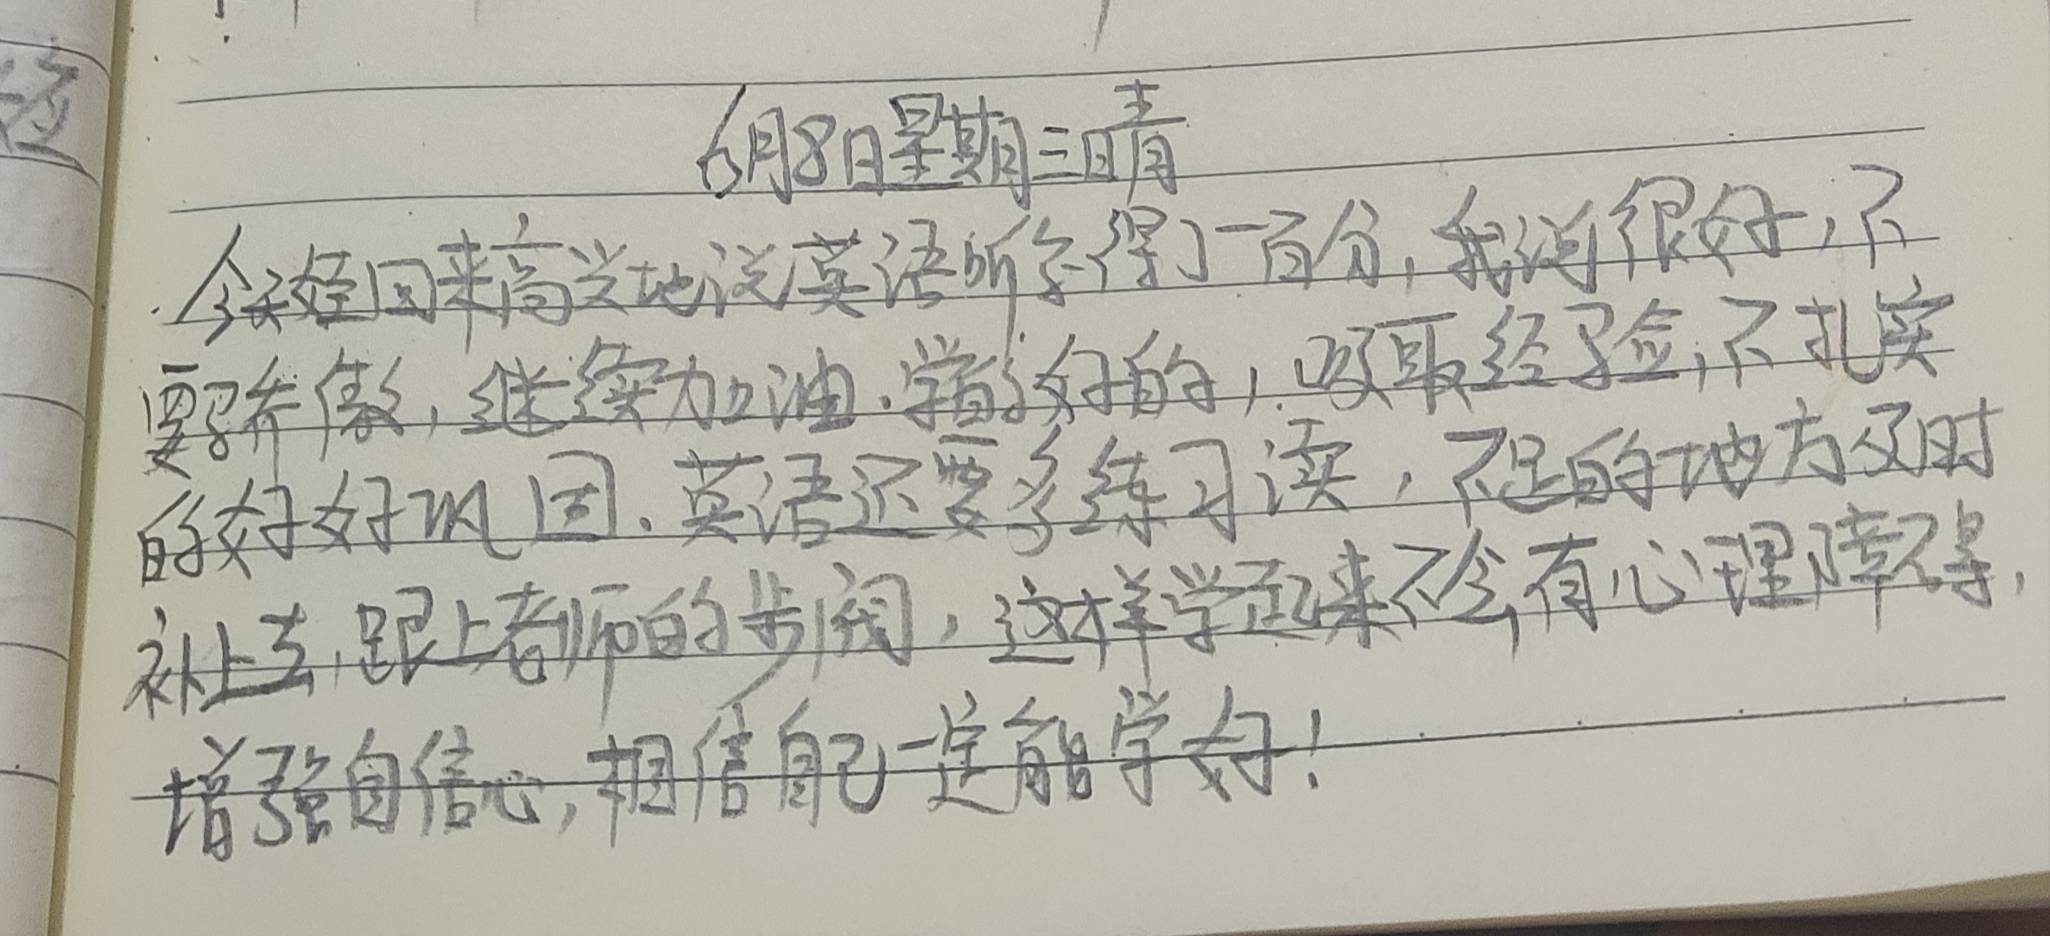 6月8日星期三晴
今天娃回来高兴地说英语听写得了一百分,我说很好,不
要骄傲,继续加油.学的好的,吸取经验,不扎实
的好好巩固.英语还要多练习读,不足的地方及时
补上去,跟上老师的步阀,这样学起来不会有心理障碍,
增强自信心,相信自己一定能学好!